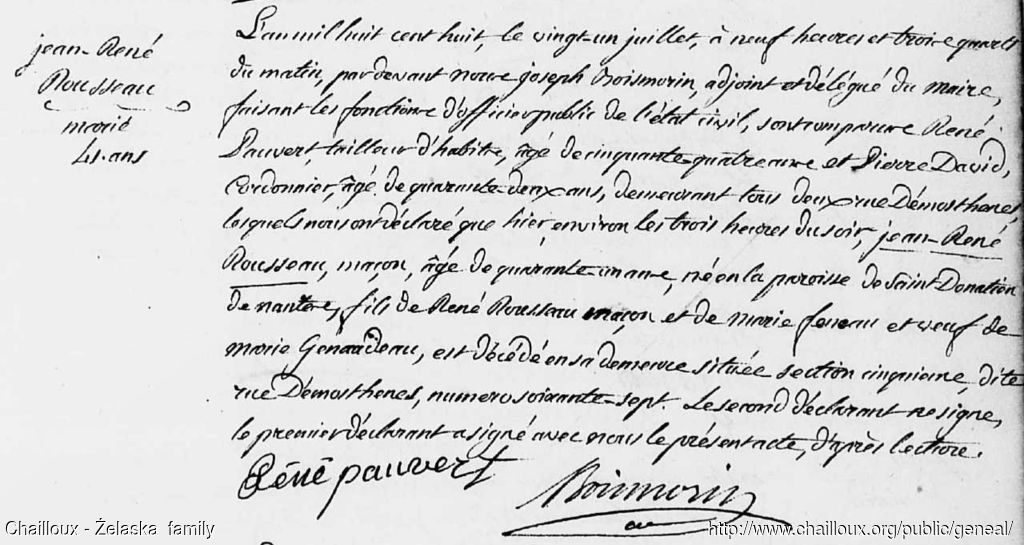 jean-René
Rousseau
marié
41. ans
L'an mil huit cent huit, le vingt-un juillet, à neuf heures et trois quarts
du matin, pardevant nous joseph Boismorin, adjoint et délégué du maire,
faisant les fonctions d'officier public de l'état civil, sont comparus René
Pauvert, tailleur d'habits, âgé de cinquante-quatre ans et Pierre David,
Cordonnier, âgé de quarante-deux ans, demeurant tous deux rue Démosthenes,
lesquels nous ont déclaré que hier, environ les trois heures du soir, jean-René
Rousseau, maçon, âgé de quarante-un ans, né en la paroisse de Saint Donatien
de nantes, fils de René Rousseau maçon et de marie feneau et veuf de
marie Génaudeau, est décédé en sa demeure située section cinquieme, dite
rue Démosthenes, numero soixante-sept. Le second déclarant ne signe,
le premier déclarant a signé avec nous le présent acte, d'après lecture.
Réné pauvert
Boismorin
Chailloux - Żelaska family
http://www.chailloux.org/public/geneal/